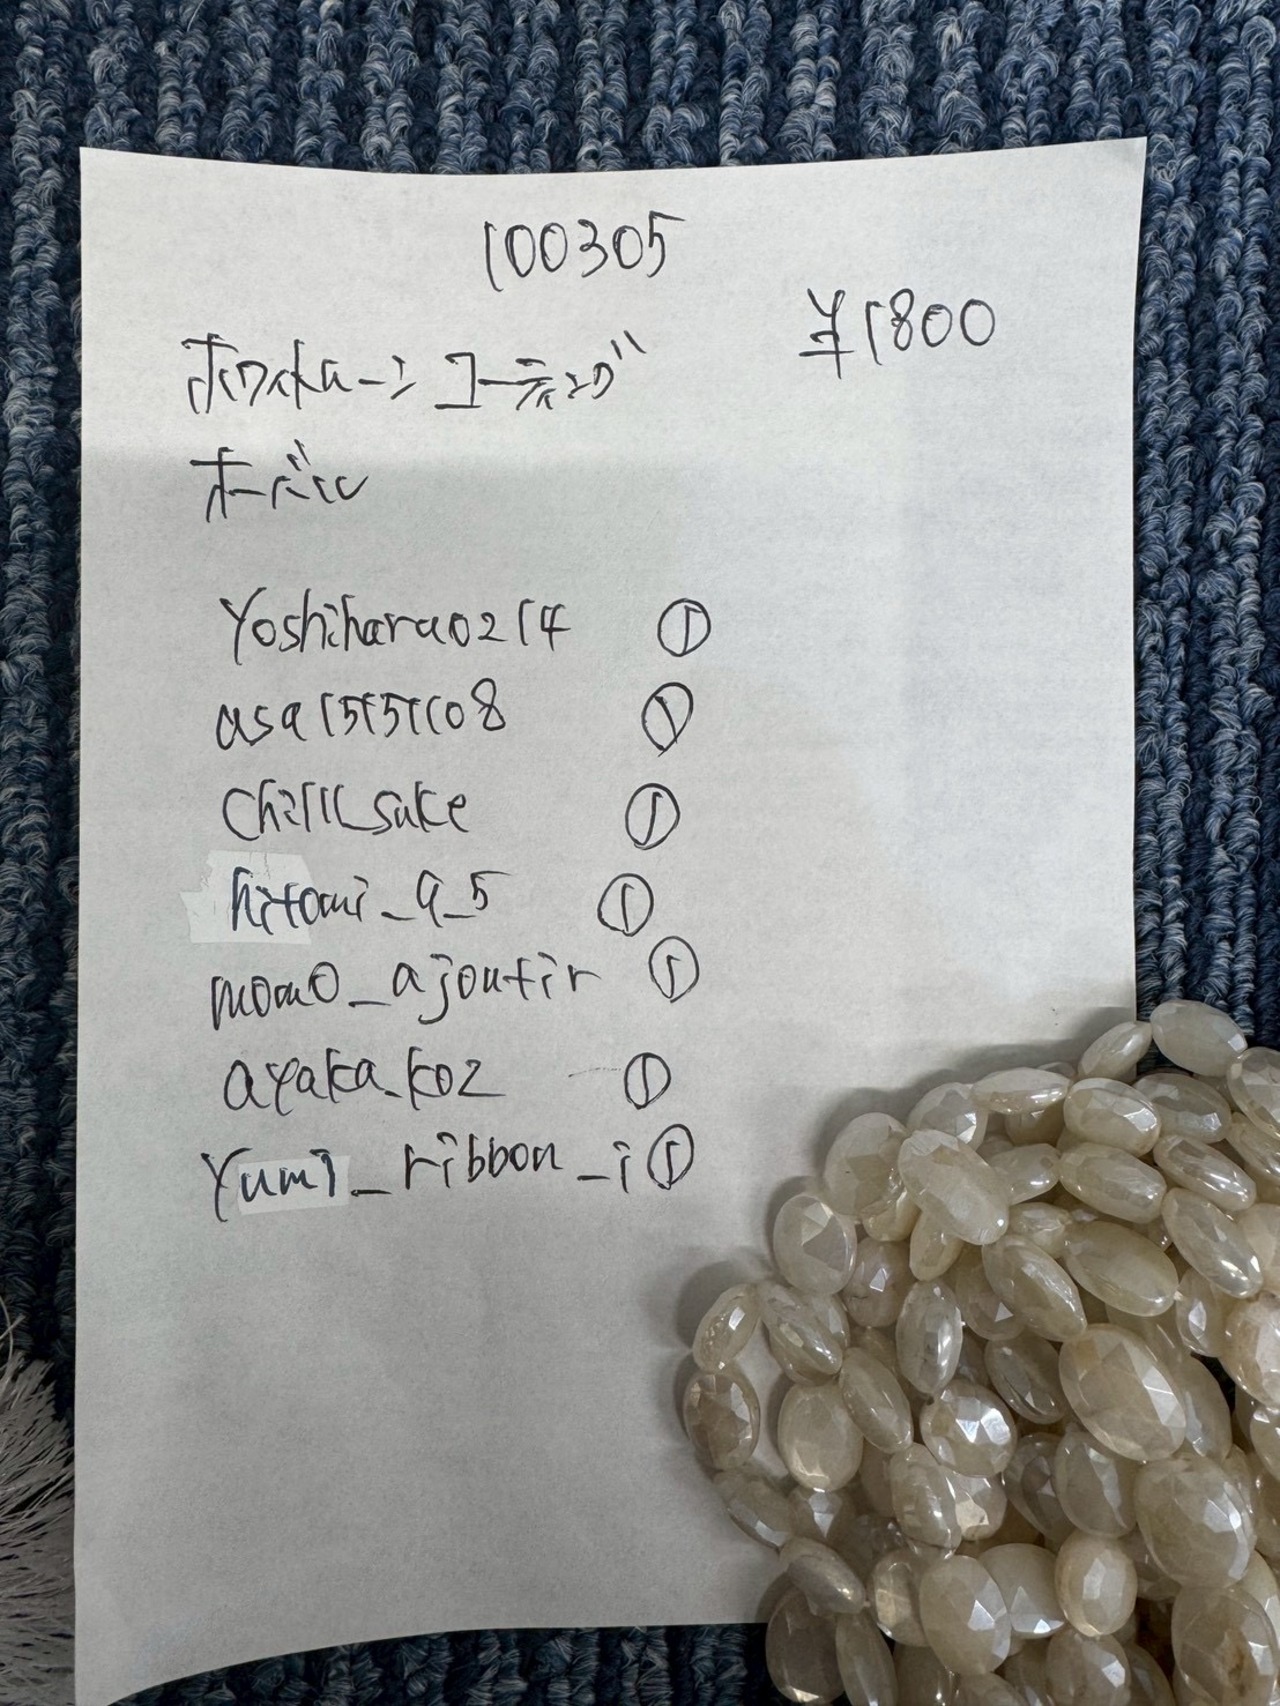 100305
¥1800
ホワイトムーン コーティング
オーバル
Yoshihara0214 ①
asa15151108 ①
Chillsake ①
hitomi_9_5 ①
momo_ajoutir ①
ayaka_k02 ①
Yumi_ribbon_i ①